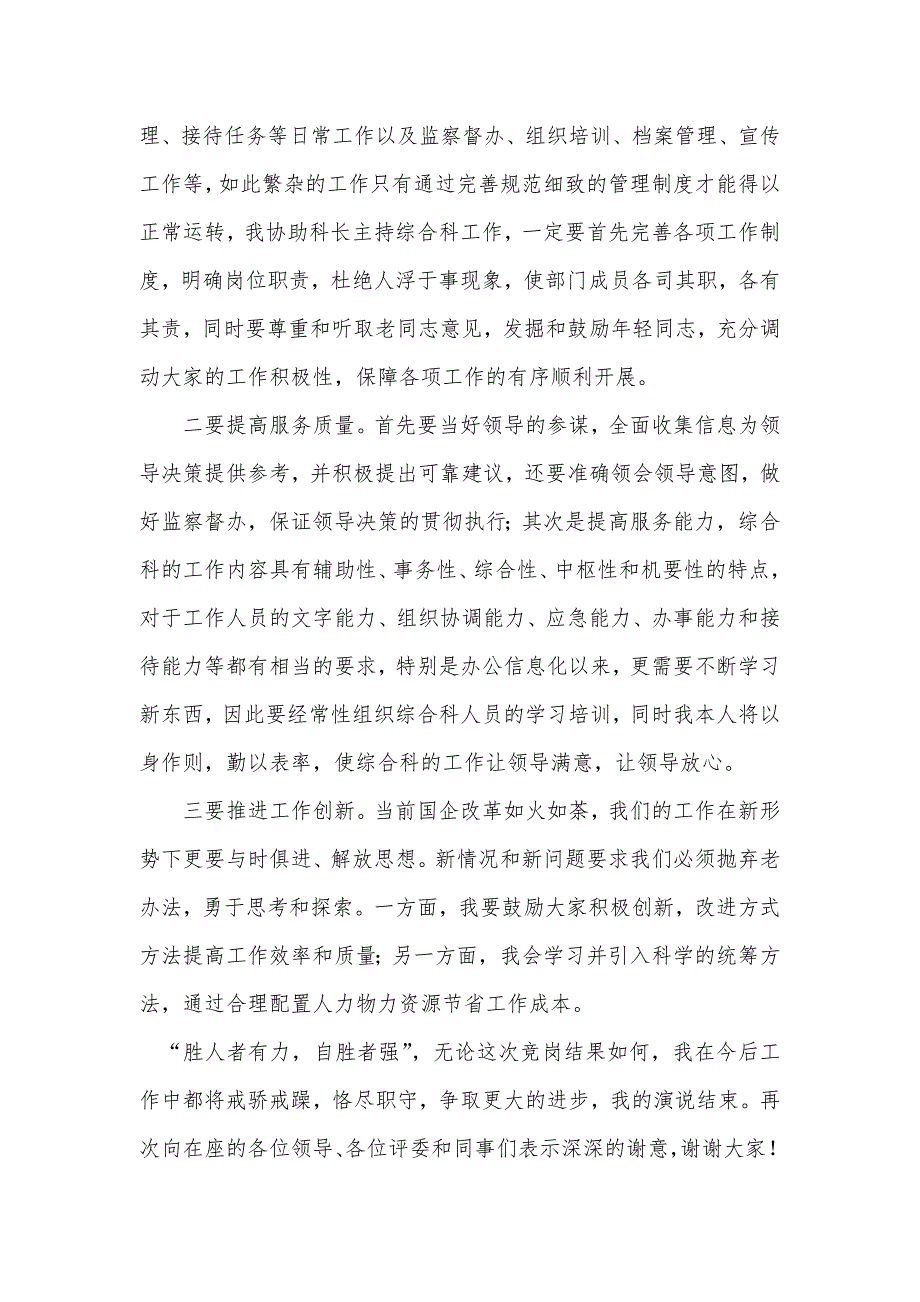 理、接待任务等日常工作以及监察督办、组织培训、档案管理、宣传
工作等，如此繁杂的工作只有通过完善规范细致的管理制度才能得以
正常运转，我协助科长主持综合科工作，一定要首先完善各项工作制
度，明确岗位职责，杜绝人浮于事现象，使部门成员各司其职，各有
其责，同时要尊重和听取老同志意见，发掘和鼓励年轻同志，充分调
动大家的工作积极性，保障各项工作的有序顺利开展。
二要提高服务质量。首先要当好领导的参谋，全面收集信息为领
导决策提供参考，并积极提出可靠建议，还要准确领会领导意图，做
好监察督办，保证领导决策的贯彻执行；其次是提高服务能力，综合
科的工作内容具有辅助性、事务性、综合性、中枢性和机要性的特点，
对于工作人员的文字能力、组织协调能力、应急能力、办事能力和接
待能力等都有相当的要求，特别是办公信息化以来，更需要不断学习
新东西，因此要经常性组织综合科人员的学习培训，同时我本人将以
身作则，勤以表率，使综合科的工作让领导满意，让领导放心。
三要推进工作创新。当前国企改革如火如荼，我们的工作在新形
势下更要与时俱进、解放思想。新情况和新问题要求我们必须抛弃老
办法，勇于思考和探索。一方面，我要鼓励大家积极创新，改进方式
方法提高工作效率和质量；另一方面，我会学习并引入科学的统筹方
法，通过合理配置人力物力资源节省工作成本。
“胜人者有力，自胜者强”，无论这次竞岗结果如何，我在今后工
作中都将戒骄戒躁，恪尽职守，争取更大的进步，我的演说结束。再
次向在座的各位领导、各位评委和同事们表示深深的谢意，谢谢大家！